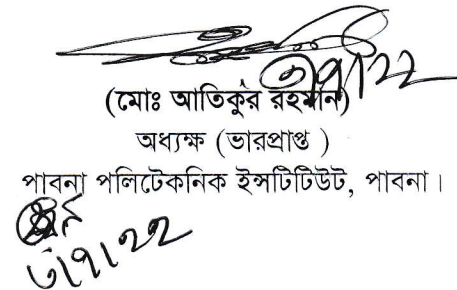 ৩/৭/২২
(মোঃ আতিকুর রহমান)
অধ্যক্ষ (ভারপ্রাপ্ত )
পাবনা পলিটেকনিক ইন্সটিটিউট, পাবনা।
৩/৭/২২